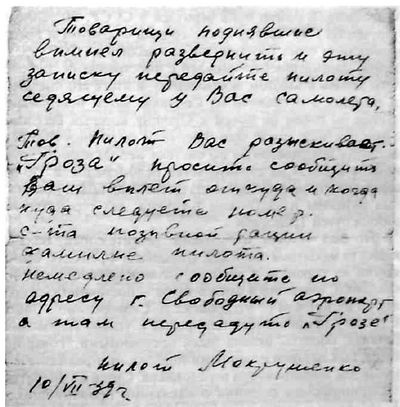 Товарищи поднявшие
вимпел разверните и эту
записку передайте пилоту
седящему у Вас самолета.
Тов. Пилот Вас разыскивает
"Гроза" просит сообщить
Ваш вылет откуда и когда
куда следуете номер.
с-та позывной рации
фамилие пилота.
немедлено сообщите по
адресу г. Свободный аэропорт
а там передадуто "Грозе"
пилот Мокрушенко
10/VII-39 г.